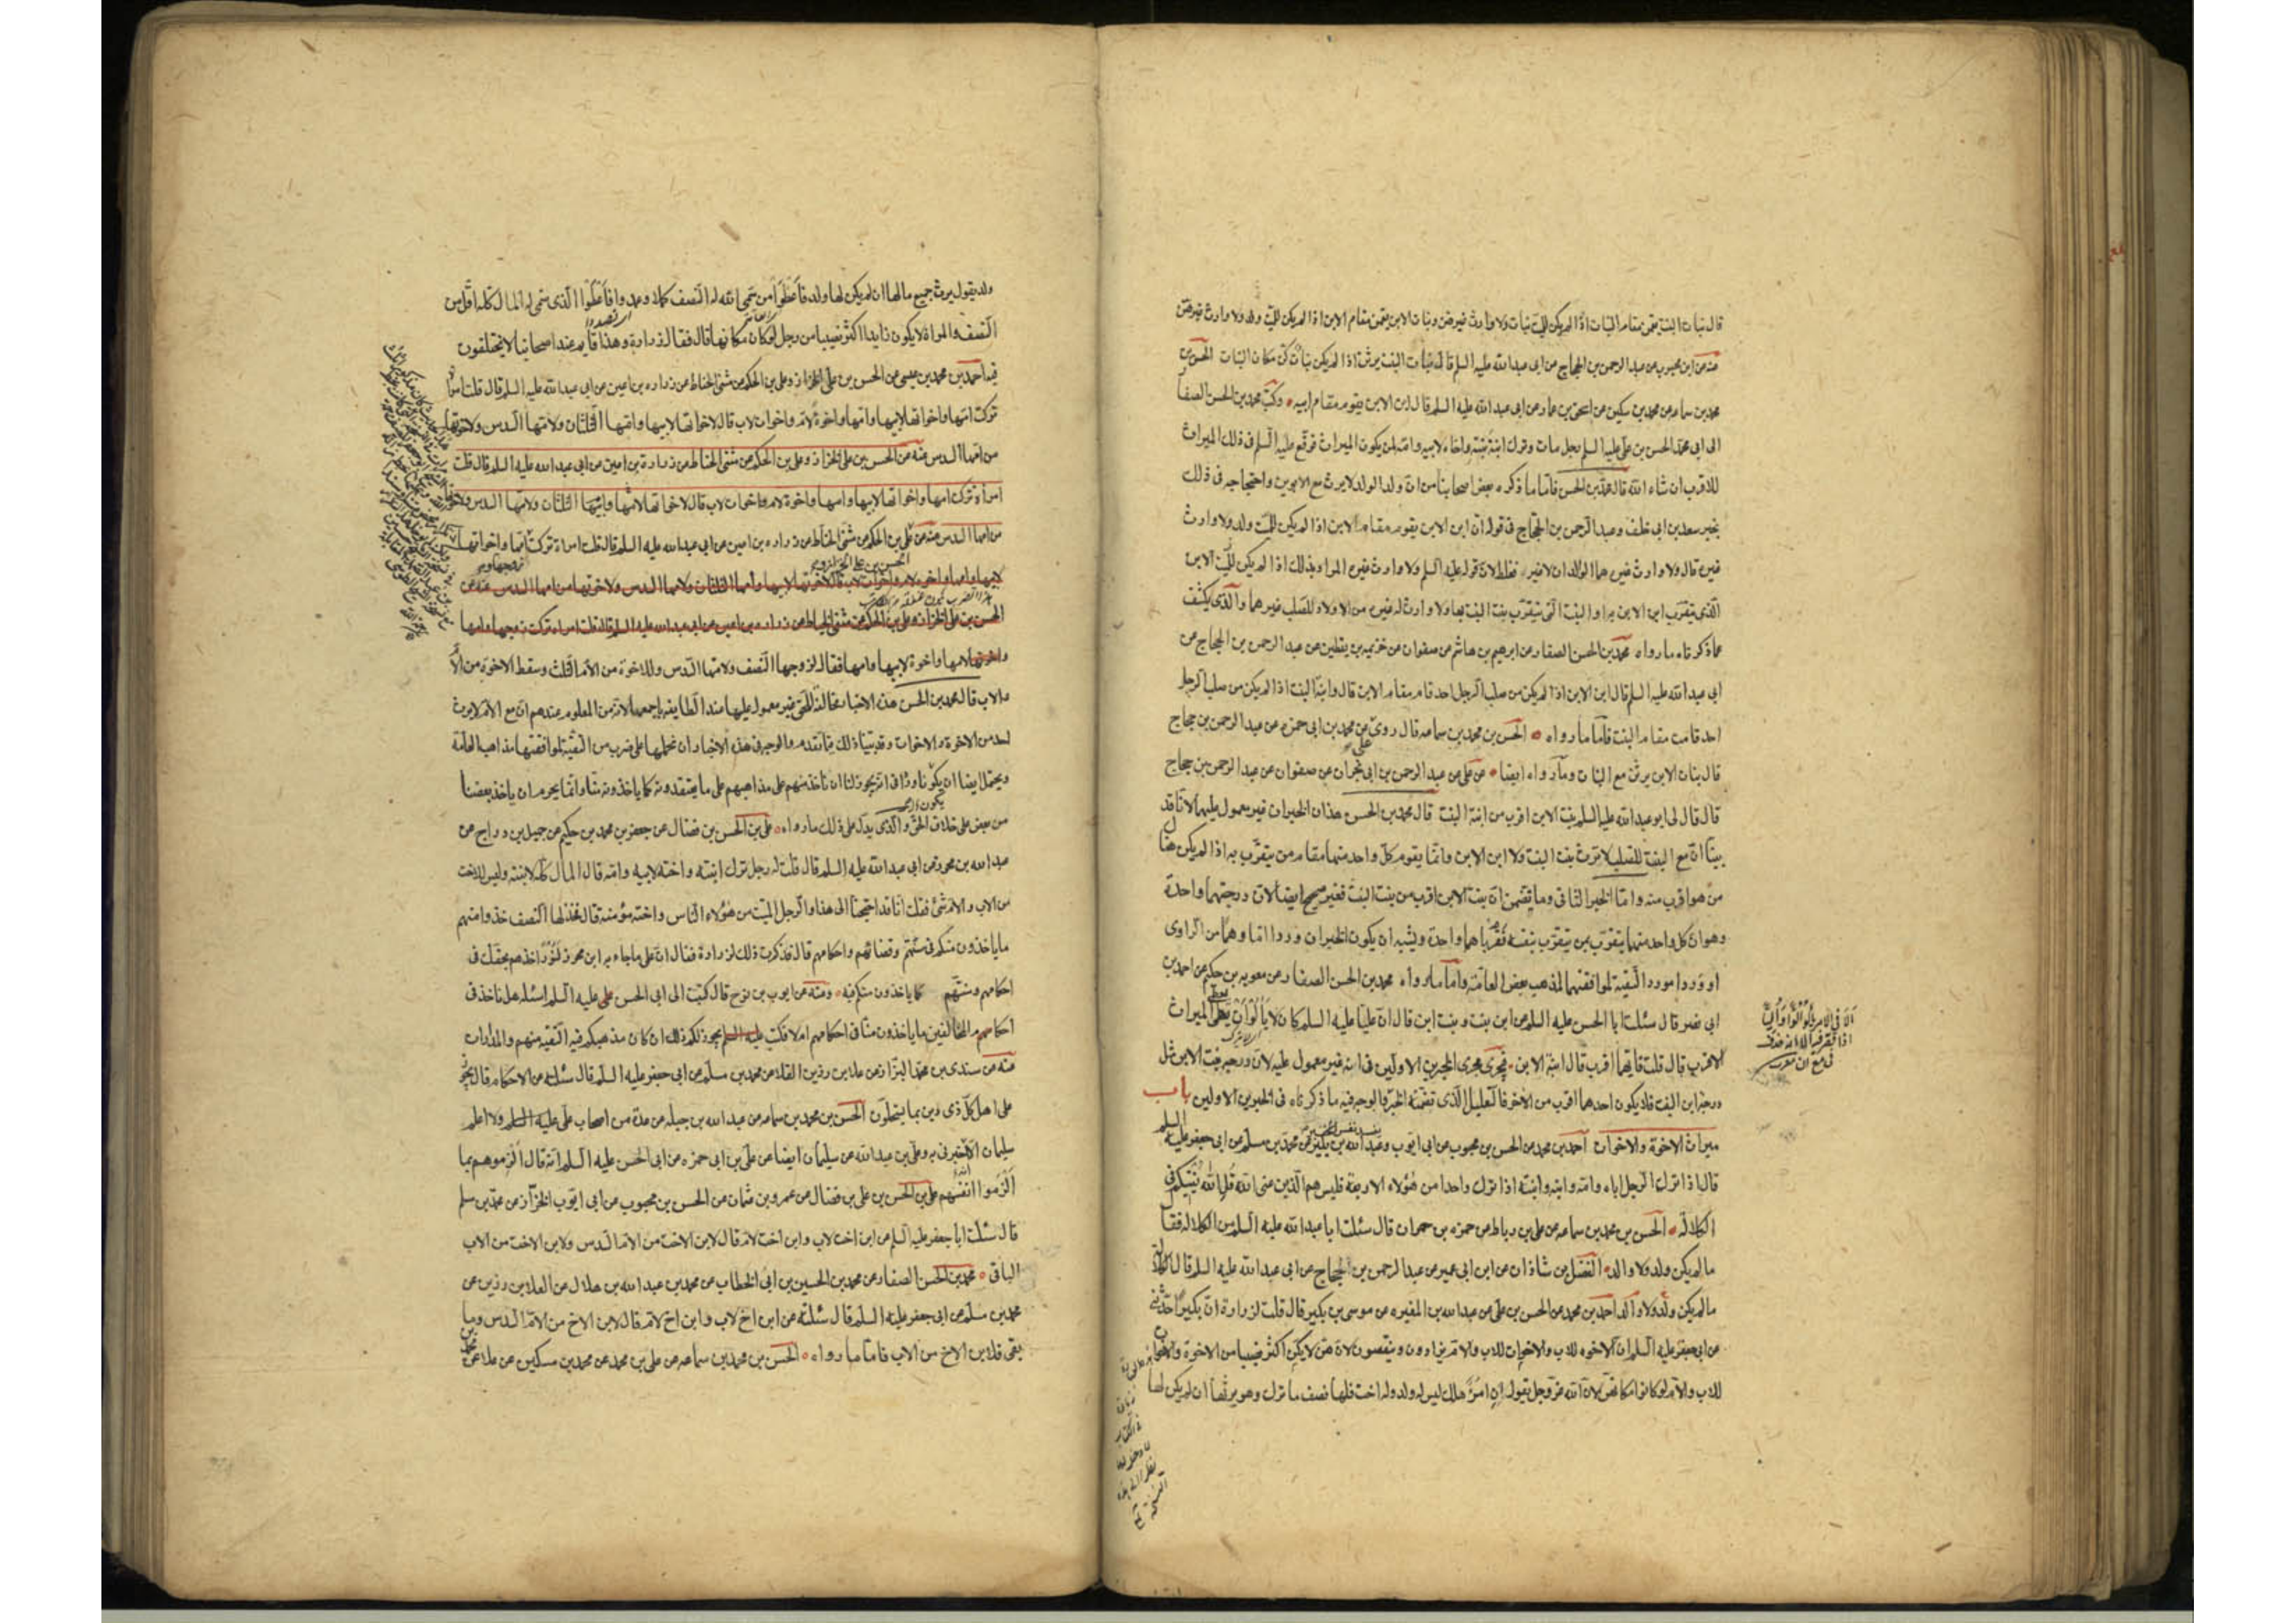 قال بنات البنت يقمن مقام البنات اذا لم يكن للميت بنات ولا وارث غيرهن وبنات الابن يقمن مقام الابن اذا لم يكن للميت ولد ولا وارث غيرهن
عنه عن ابن محبوب عن عبد الرحمن بن الحجاج عن ابى عبد الله عليه السلم قال بنات البنت يرثن اذا لم يكن بنات كن مكان البنات الحسن بن
محمد بن سماعه عن محمد بن سكين عن اسحق بن عمار عن ابى عبد الله عليه السلم قال ابن الابن يقوم مقام ابيه وكتب محمد بن الحسن الصفار
الى ابى محمد الحسن بن على عليه السلم رجل مات وترك ابنة بنته واخاه لابيه وامه لمن يكون الميراث فوقع عليه السلم فى ذلك الميراث
للاقرب ان شاء الله قال محمد بن الحسن فاما ما ذكره بعض اصحابنا من ان ولد الولد لا يرث مع الابوين واحتجاجه فى ذلك
بخبر سعد بن ابى خلف وعبد الرحمن بن الحجاج فى قوله ان ابن الابن يقوم مقام الابن اذا لم يكن للميت ولد ولا وارث
غيره قال ولا وارث غيره هما الوالدان لا غير فغلط لان قوله عليه السلم ولا وارث غيره المراد بذلك اذا لم يكن للميت الابن
الذى يتقرب ابن الابن به او البنت التى يتقرب بنت البنت بها ولا وارث له غيره من الاولاد للصلب غيرهما والذى يكشف
عما ذكرناه ما رواه محمد بن الحسن الصفار عن ابرهيم بن هاشم عن صفوان عن خزيمه بن يقطين عن عبد الرحمن بن الحجاج عن
ابى عبد الله عليه السلم قال ابن الابن اذا لم يكن من صلب الرجل احد قام مقام الابن قال وابنة البنت اذا لم يكن من صلب الرجل
احد قامت مقام البنت فاما ما رواه الحسن بن محمد بن سماعه قال روى على عن محمد بن ابى حمزه عن عبد الرحمن بن حجاج
قال بنات الابن يرثن مع البنات وما رواه ايضا عن على عن عبد الرحمن بن ابى نجران عن صفوان عن عبد الرحمن بن حجاج
قال قال لى ابو عبد الله عليه السلم بنت الابن اقرب من ابنة البنت قال محمد بن الحسن هذان الخبران غير معمول عليهما لانا قد
بينا ان مع البنت للصلب لا ترث بنت البنت ولا ابن الابن وانما يقوم كل واحد منهما مقام من يتقرب به اذا لم يكن هناك
من هو اقرب منه واما الخبر الثانى وما يتضمن ان بنت الابن اقرب من بنت البنت فغير صحيح ايضا لان درجتهما واحدة
وهو ان كل واحد منهما يتقرب بمن يتقرب بنفسه فقرباهما واحدة ويشبه ان يكون الخبران وردا اما وهما من الراوى
او وردا مورد التقية لموافقتهما لمذهب بعض العامة واما ما رواه محمد بن الحسن الصفار عن معويه بن حكيم عن احمد بن
ابى نصر قال سئلت ابا الحسن عليه السلم عن ابن بنت وبنت ابن قال ان عليا عليه السلم كان لا يألو ان يعطى الميراث
الاقرب قال قلت فايهما اقرب قال ابنة الابن فجرى مجرى الخبرين الاولين فى انه غير معمول عليه لان درجة بنت الابن مثل
درجة ابن البنت فلا يكون احدهما اقرب من الاخر فالتعليل الذى تضمنه الخبر فالوجه فيه ما ذكرناه فى الخبرين الاولين باب
ميراث الاخوة والاخوات احمد بن محمد عن الحسن بن محبوب عن ابى ايوب وعبد الله بن بكير عن محمد بن مسلم عن ابى جعفر عليه السلم
قال اذا ترك الرجل اباه وامه وابنه وابنته اذا ترك واحدا من هؤلاء الاربعة فليس هم الذين عنى الله قل الله يفتيكم فى
الكلالة الحسن بن محمد بن سماعه عن على بن رباط عن حمزه بن حمران قال سئلت ابا عبد الله عليه السلم عن الكلاله فقال
ما لم يكن ولد ولا والد الفضل بن شاذان عن ابن ابى عمير عن عبد الرحمن بن الحجاج عن ابى عبد الله عليه السلم قال الكلالة
ما لم يكن ولد ولا والد احمد بن محمد عن الحسن بن على عن عبد الله بن المغيره عن موسى بن بكير قال قلت لزرارة ان بكيرا حدثنى
عن ابى جعفر عليه السلم ان الاخوه للاب والاخوات للاب والام يزادون وينقصون لانهن لا يكن اكثر نصيبا من الاخوة والاخوات
للاب والام لو كانوا مكانهن لان الله عز وجل يقول ان امرؤ هلك ليس له ولد وله اخت فلها نصف ما ترك وهو يرثها ان لم يكن لها
ولد يقول يرث جميع مالها ان لم يكن لها ولد فاعطوا من سمى الله له النصف كملا وعمدوا فاعطوا الذى سمى له المال كله اقل من
النصف والمراة لا يكون زايدا اكثر نصيبا من رجل لو كان مكانها قال فقال زرارة وهذا قايم عند اصحابنا لا يختلفون
فيه احمد بن محمد بن عيسى عن الحسن بن على الخزاز وعلى بن الحكم عن مثنى الحناط عن زراره بن اعين عن ابى عبد الله عليه السلم قال قلت امراة
تركت امها واخواتها لابيها وامها واخوة لام واخوات لاب قال لاخواتها لابيها وامها الثلثان ولامها السدس ولاخوتها
من امها السدس عنه عن الحسن بن على الخزاز وعلى بن الحكم عن مثنى الحناط عن زرارة بن اعين عن ابى عبد الله عليه السلم قال قلت
امراة تركت امها واخواتها لابيها وامها واخوة لام واخوات لاب قال لاخواتها لامها وابيها الثلثان ولامها السدس ولاخوتها
من امها السدس عنه عن على بن الحكم عن مثنى الحناط عن زراره بن اعين عن ابى عبد الله عليه السلم قال قلت امراة تركت امها واخواتها
لابيها وامها واخوة لام واخوات لاب قال لاخوتها لابيها وامها الثلثان ولامها السدس ولاخوتها من امها السدس عنه عن
الحسن بن على الخزاز وعلى بن الحكم عن مثنى الحناط عن زراره بن اعين عن ابى عبد الله عليه السلم قال قلت امراة تركت زوجها وامها
واخوتها لامها واخوة لابيها وامها فقال لزوجها النصف ولامها السدس وللاخوة من الام الثلث وسقط الاخوة من الام
والاب قال محمد بن الحسن هذه الاخبار مخالفة للحق غير معمول عليها عند الطايفه باجمعها لان من المعلوم عندهم ان مع الام لا يرث
احد من الاخوة والاخوات وقد بينا ذلك فيما تقدم والوجه فى هذه الاخبار ان نحملها على ضرب من التقية لموافقتها مذاهب العامة
ويحتمل ايضا ان يكون ورد فى انه يجوز لنا ان نأخذ منهم على مذاهبهم على ما يعتقدونه كما ياخذونه منا وانما يحرم ان ياخذ بعضنا
من بعض على خلاف الحق والذى يدل على ذلك ما رواه على بن الحسن بن فضال عن جعفر بن محمد بن حكيم عن جميل بن دراج عن
عبد الله بن محرز عن ابى عبد الله عليه السلم قال قلت له رجل ترك ابنته واخته لابيه وامه قال المال كله لابنته وليس للاخت
من الاب والام شئ فقلت انا قد احتجنا الى هذا والرجل الميت من هؤلاء الناس واخته مؤمنة قال فخذ لها النصف خذوا منهم
ما ياخذون منكم فى سنتهم وقضائهم واحكامهم قال فذكرت ذلك لزرارة فقال ان على ما جاء به ابن محرز لنورا خذهم بحقك فى
احكامهم وسنتهم كما ياخذون منكم فيه وعنه عن ايوب بن نوح قال كتبت الى ابى الحسن على عليه السلم اسئله هل ناخذ فى
احكام المخالفين ما ياخذون منا فى احكامهم ام لا فكتب عليه السلم يجوز لكم ذلك ان كان مذهبكم فيه التقيه منهم والمدارات
عنه عن سندى بن محمد البزاز عن علا بن رزين القلا عن محمد بن مسلم عن ابى جعفر عليه السلم قال سئلته عن الاحكام قال يجوز
على اهل كل ذى دين بما يستحلون الحسن بن محمد بن سماعه عن عبد الله بن جبله عن عدة من اصحاب على عليه السلم ولا اعلم
سليمان الا اخبرنى به وعلى بن عبد الله عن سليمان ايضا عن على بن ابى حمزه عن ابى الحسن عليه السلم انه قال الزموهم بما
الزموا انفسهم على بن الحسن بن على بن فضال عن عمرو بن عثمان عن الحسن بن محبوب عن ابى ايوب الخزاز عن محمد بن مسلم
قال سئلت ابا جعفر عليه السلم عن ابن اخت لاب وابن اخت لام قال لابن الاخت من الام السدس ولابن الاخت من الاب
الباقى محمد بن الحسن الصفار عن محمد بن الحسين بن ابى الخطاب عن محمد بن عبد الله بن هلال عن العلا بن رزين عن
محمد بن مسلم عن ابى جعفر عليه السلم قال سئلته عن ابن اخ لاب وابن اخ لام قال لابن الاخ من الام السدس وما
بقى فلابن الاخ من الاب فاما ما رواه الحسن بن محمد بن سماعه عن على بن محمد عن محمد بن مسكين عن علا عن محمد بن